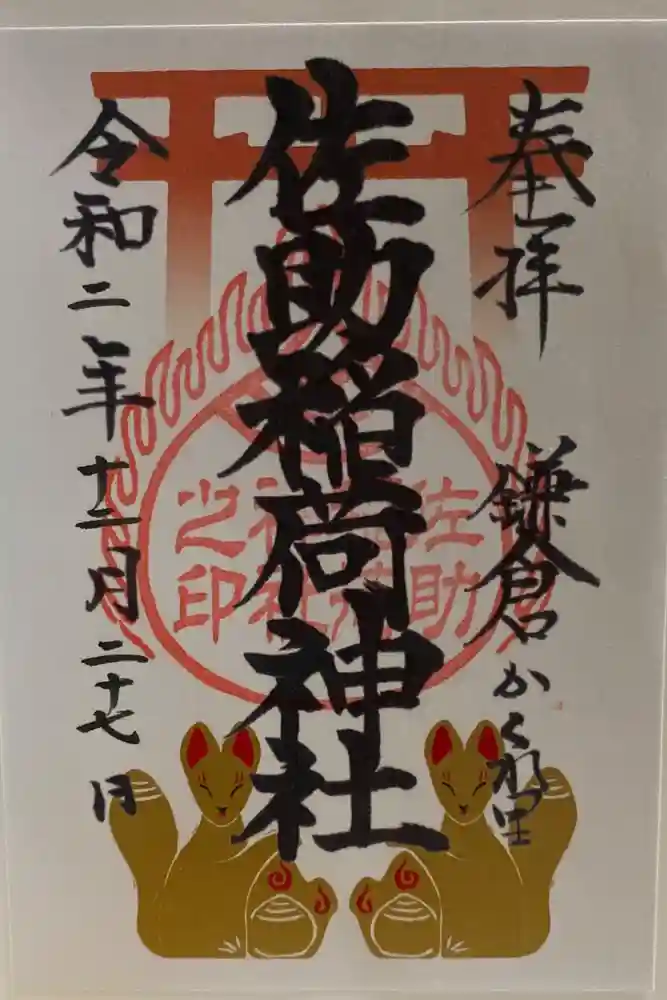 奉拝
鎌倉かくれ里
佐助稲荷神社
佐助稲荷神社之印
令和二年十二月二十七日